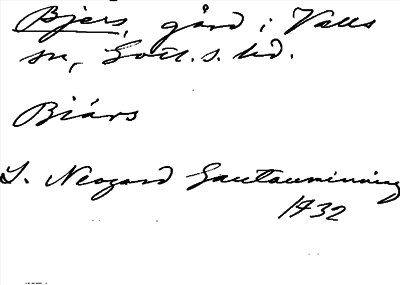 Bjers, gård i Valls
sn, Gotl. s. hd.
Biärs
J. Neogard Gautauminning
1732